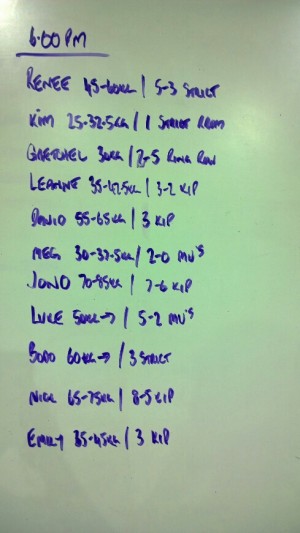 6:00PM
RENEE 45-60KG / 5-3 STRICT
KIM 25-32.5KG / 1 STRICT
GRETCHEL 30KG / 2-5 RING ROW
LEANNE 35-42.5KG / 3-2 KIP
DAVID 55-65KG / 3 KIP
MEG 30-37.5KG / 2-0 MU'S
JONO 70-85KG / 7-6 KIP
LUKE 50KG→ / 5-2 MU'S
BODO 60KG→ / 3 STRICT
NICK 65-75KG / 8-5 KIP
EMILY 35-45KG / 3 KIP